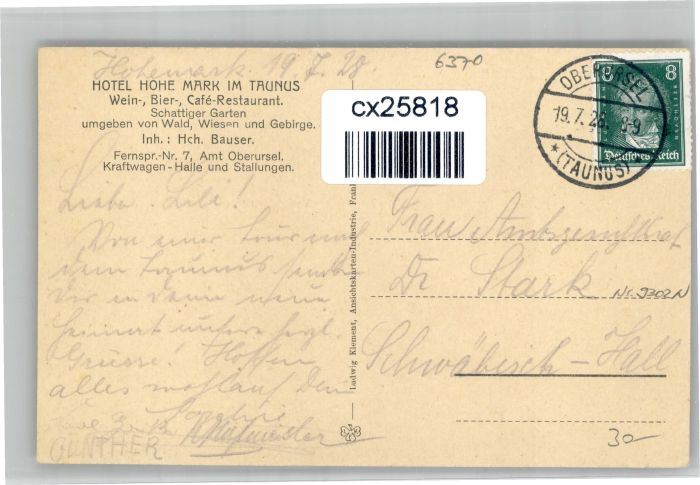 Hohemark 19.7.28.
6370
HOTEL HOHE MARK IM TAUNUS
Wein-, Bier-, Café-Restaurant.
Schattiger Garten
umgeben von Wald, Wiesen und Gebirge.
Inh.: Hch. Bauser.
Fernspr.-Nr. 7, Amt Oberursel.
Kraftwagen-Halle und Stallungen.
cx25818
OBERURSEL
19.7.28. 8-9
* (TAUNUS)
8 8
Deutsches Reich
Liebe Lili!
Von einer Tour nach
dem Taunus senden
Dir in Deine neue
Heimat unsere herzl.
Grüsse! Hoffen
alles wohlauf Dein
Sophie
GÜNTHER
Ludwig Klement, Ansichtskarten-Industrie, Frank
Frau Amtsgerichtsrat
Dr Stark
Nr. 9302N
Schwäbisch-Hall
30-